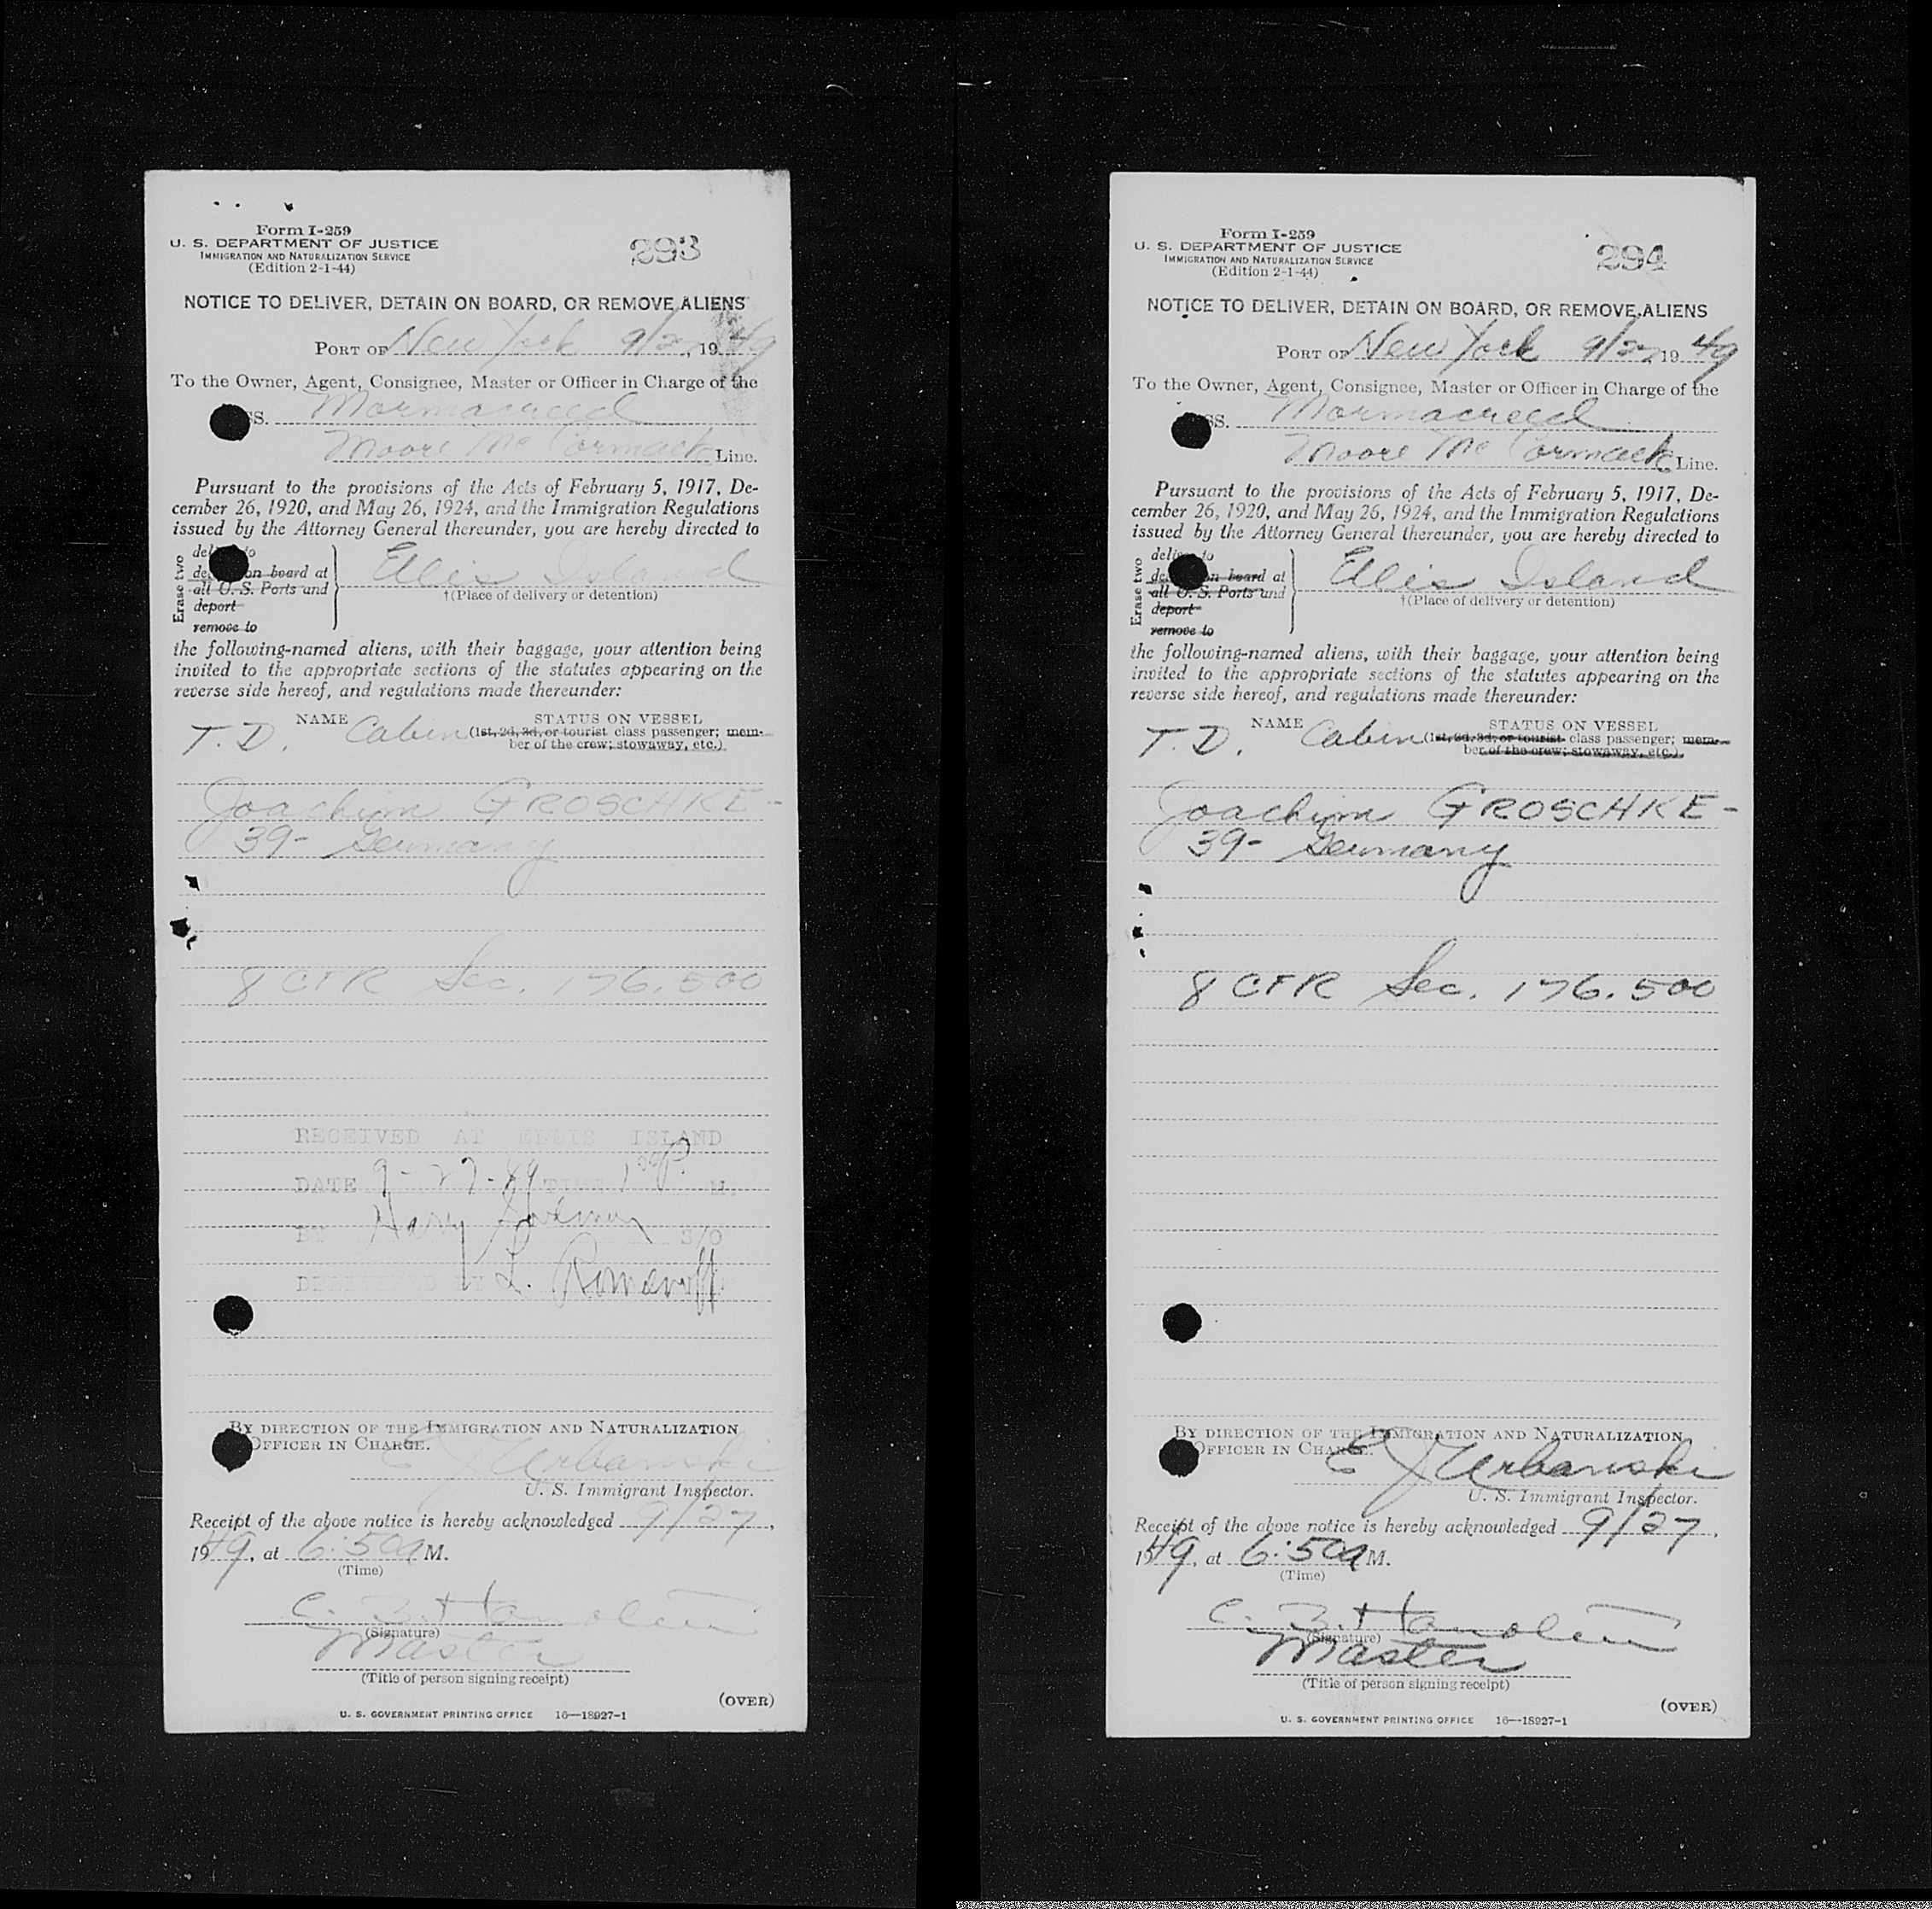 Form I-259
U. S. DEPARTMENT OF JUSTICE
IMMIGRATION AND NATURALIZATION SERVICE
(Edition 2-1-44)
293
NOTICE TO DELIVER, DETAIN ON BOARD, OR REMOVE ALIENS
PORT OF New York 9/27, 1949
To the Owner, Agent, Consignee, Master or Officer in Charge of the
SS. Mormacreed
Moore McCormack Line.
Pursuant to the provisions of the Acts of February 5, 1917, De-
cember 26, 1920, and May 26, 1924, and the Immigration Regulations
issued by the Attorney General thereunder, you are hereby directed to
Erase two
to
on board at
all U. S. Ports and
deport
remove to
Ellis Island
†(Place of delivery or detention)
the following-named aliens, with their baggage, your attention being
invited to the appropriate sections of the statutes appearing on the
reverse side hereof, and regulations made thereunder:
NAME STATUS ON VESSEL
T. D. Cabin (1st, 2d, 3d, or tourist class passenger; mem-
ber of the crew; stowaway, etc.)
Joachim GROSCHKE-
39- Germany
8 CFR Sec. 176.500
RECEIVED AT ELLIS ISLAND
DATE 9-27-49 TIME 1 00 P. M.
BY Harry S/O
L. Romanoff
BY DIRECTION OF THE IMMIGRATION AND NATURALIZATION
OFFICER IN CHARGE.
E J Urbanski
U. S. Immigrant Inspector.
Receipt of the above notice is hereby acknowledged 9/27,
1949, at 6:50a M.
(Time)
C. B.
(Signature)
Master
(Title of person signing receipt)
(OVER)
U. S. GOVERNMENT PRINTING OFFICE 16—18927-1
Form I-259
U. S. DEPARTMENT OF JUSTICE
IMMIGRATION AND NATURALIZATION SERVICE
(Edition 2-1-44)
294
NOTICE TO DELIVER, DETAIN ON BOARD, OR REMOVE ALIENS
PORT OF New York 9/27, 1949
To the Owner, Agent, Consignee, Master or Officer in Charge of the
SS. Mormacreed
Moore McCormack Line.
Pursuant to the provisions of the Acts of February 5, 1917, De-
cember 26, 1920, and May 26, 1924, and the Immigration Regulations
issued by the Attorney General thereunder, you are hereby directed to
Erase two
to
on board at
all U. S. Ports and
deport
remove to
Ellis Island
†(Place of delivery or detention)
the following-named aliens, with their baggage, your attention being
invited to the appropriate sections of the statutes appearing on the
reverse side hereof, and regulations made thereunder:
NAME STATUS ON VESSEL
T. D. Cabin (1st, 2d, 3d, or tourist class passenger; mem-
ber of the crew; stowaway, etc.)
Joachim GROSCHKE-
39- Germany
8 CFR Sec. 176.500
BY DIRECTION OF THE IMMIGRATION AND NATURALIZATION
OFFICER IN CHARGE.
E J Urbanski
U. S. Immigrant Inspector.
Receipt of the above notice is hereby acknowledged 9/27,
1949, at 6:50a M.
(Time)
C. B.
(Signature)
Master
(Title of person signing receipt)
(OVER)
U. S. GOVERNMENT PRINTING OFFICE 16—18927-1